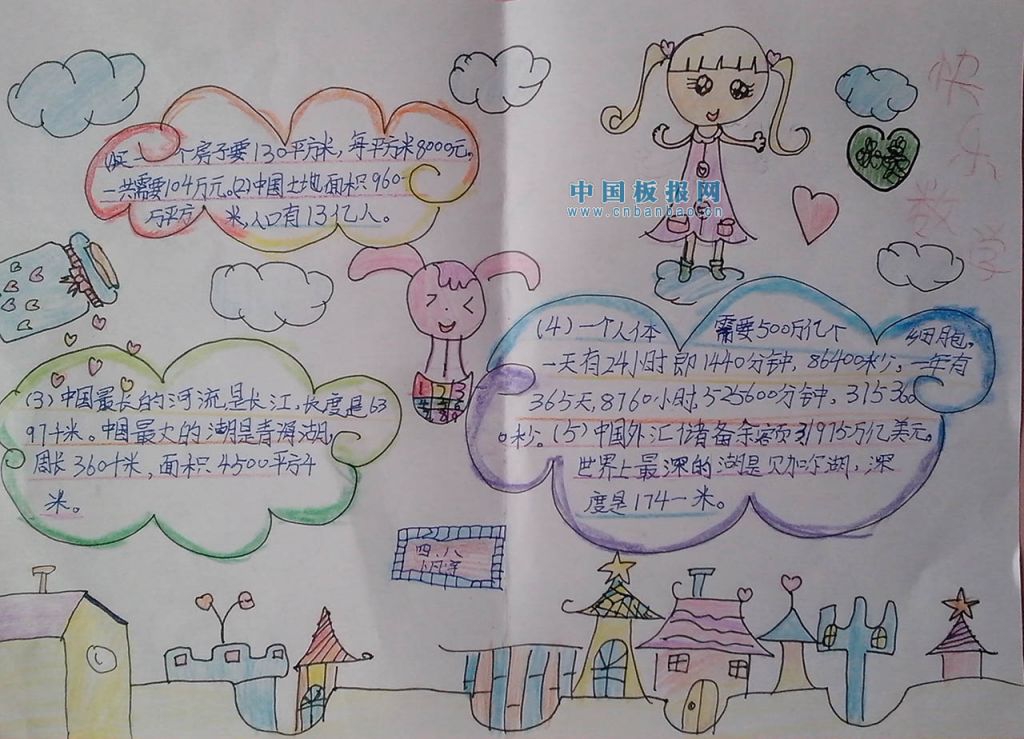 快乐数学
一个房子要130平方米,每平方米8000元。
一共需要104万元。(2)中国土地面积960
万平方米,人口有13亿人。
中国板报网
www.cnbanbao.cn
(3)中国最长的河流是长江,长度是63
97千米。中国最大的湖是青海湖,
周长360千米,面积4500平方千
米。
(4)一个人体需要500万亿个细胞。
一天有24小时即1440分钟,86400秒。一年有
365天,8760小时,525600分钟,315360
0秒。(5)中国外汇储备余额31975万亿美元。
世界上最深的湖是贝加尔湖,深
度是174一米。
四、八